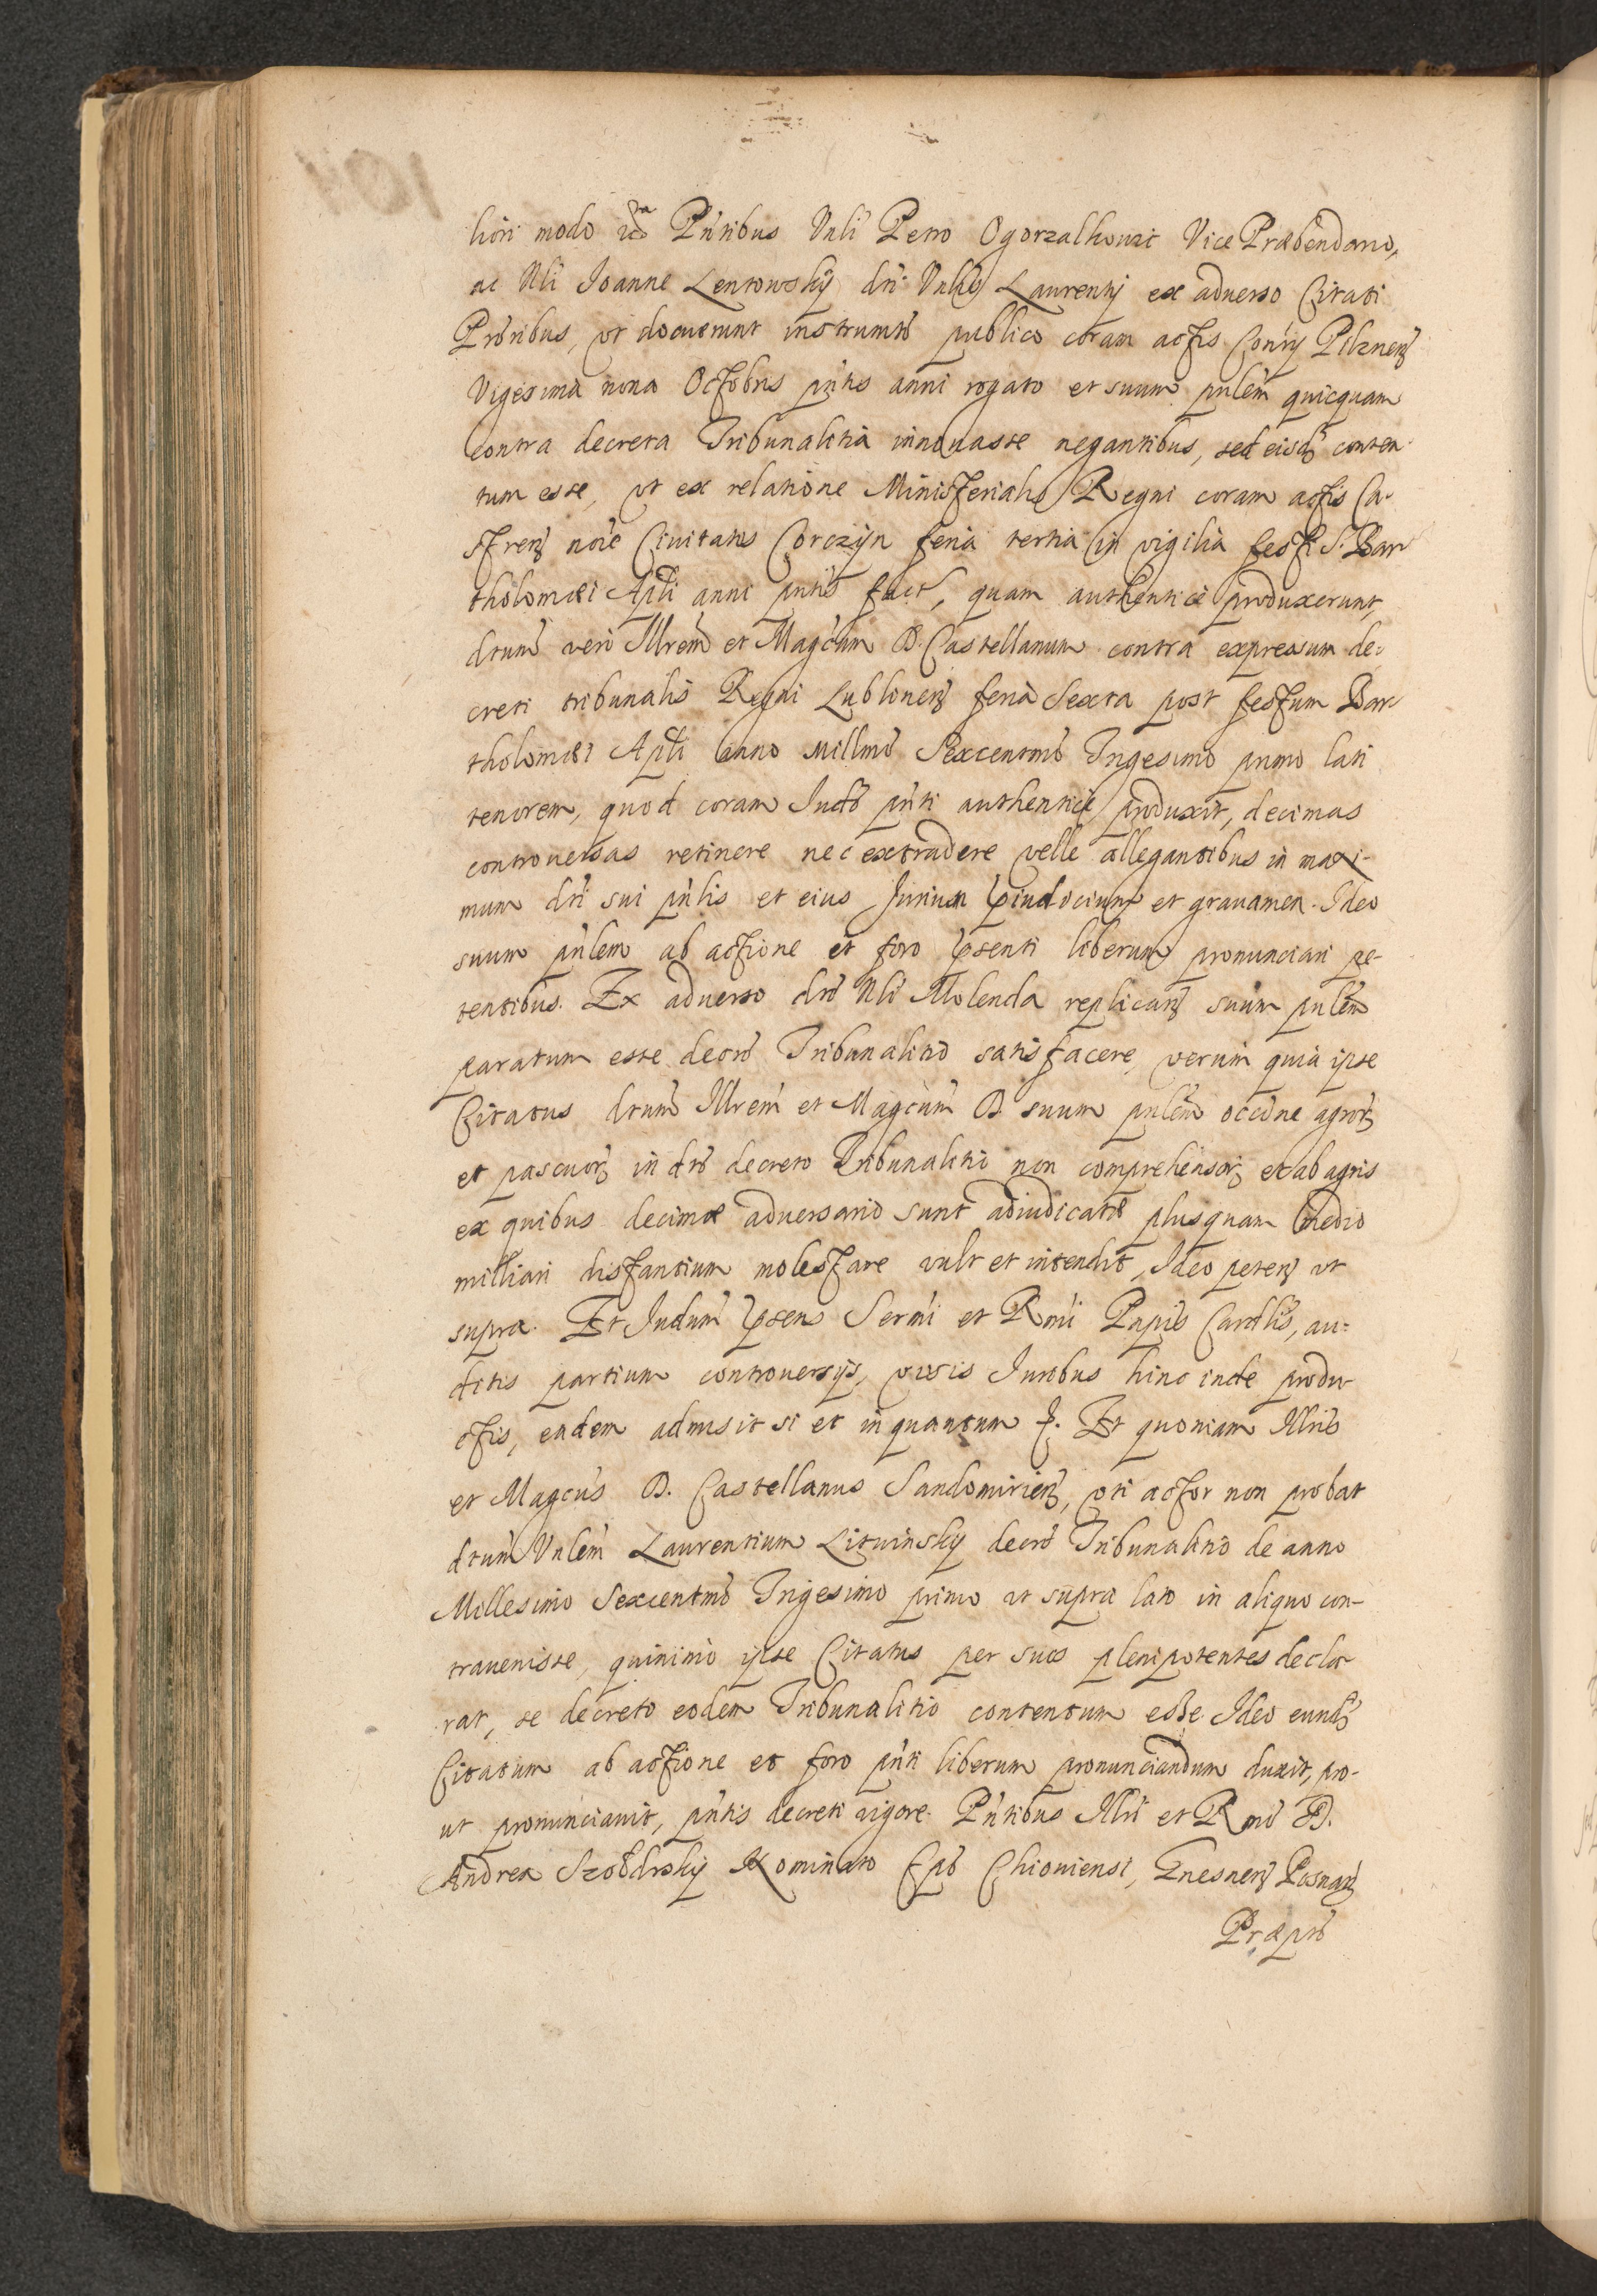 liori modo Pñtibus Vnli Petro Ogorzalkowic Vice Præbendario,
ac Nli Joanne Lentowsky dti Vnlis Laurentij ex aduerso Citati
Prõribus, vt docuerunt instrumtõ publico coram actis Conrij Pilznen̄
Vigesima nona Octobris pñtis anni rogato et suum pnlem quicquam
contra decreta Tribunalitia innouasse negantibus, sed eisd conten
tum esse, vt ex relatione Ministerialis Regni coram actis Ca-
stren̄ noue Ciuitatis Corczÿn feria tertia in vigilia festi S. Bar
tholomæi Apli anni pntis fact, quam authentice produxerunt,
dtum vero Illrem et Magcum D. Castellanum contra expressum de-
creti tribunalis Regni Lublinen̄ feria Sexta post festum Bar
tholomæi Apli anno Millmo Sexcentmo Trigesimo primo lati
tenorem, quod coram Judõ pñti authentice produxit, decimas
controuersas retinere nec extradere velle allegantibus in maxi-
mum dti sui pñlis et eius Jurium piudicium et grauamen. Ideo
suum pnlem ab actione et foro psenti liberum pronunciari pe-
tentibus. Ex aduerso dto Nli Molenda replican̄ suum pnlem
paratum esse decrõ Tribunalitio satisfacere, verum quia ipse
Citatus dtum Illrem et Magcum D. suum pnlem occõne agror̄
et pascuor̄ in dtõ decreto Tribunalitio non comprehensor̄ et ab agris
ex quibus decimæ aduersario sunt adiudicatæ plusquam medio
milliari distantium molestare vult et intendit, Ideo peten̄ vt
supra. Et Judum psens Sermi et Rmi Pnpis Cardlis, au-
ditis partium controuersijs, visis Juribus hinc inde produ
ctis, eadem admisit si et inquantum &. Et quoniam Illris
et Magcus D. Castellanus Sandomirien̄, vti actor non probat
dtum Vnlem Laurentium Lituinsky decrõ Tribunalitio de anno
Millesimo Sexcentmo Trigesimo primo vt supra lato in aliquo con-
trauenisse, quinimo ipse Citatus per suos plenipotentes decla
rat, se decreto eodem Tribunalitio contentum esse. Ideo eund
Citatum ab actione et foro pñti liberum pronunciandum duxit, pro-
ut pronunciauit, pñtis decreti vigore. Pñtibus Illri et Rmo D.
Andrea Szołdrskÿ Nominato Epõ Chiouiensi, Gnesnen̄ Posnan̄
Præptõ